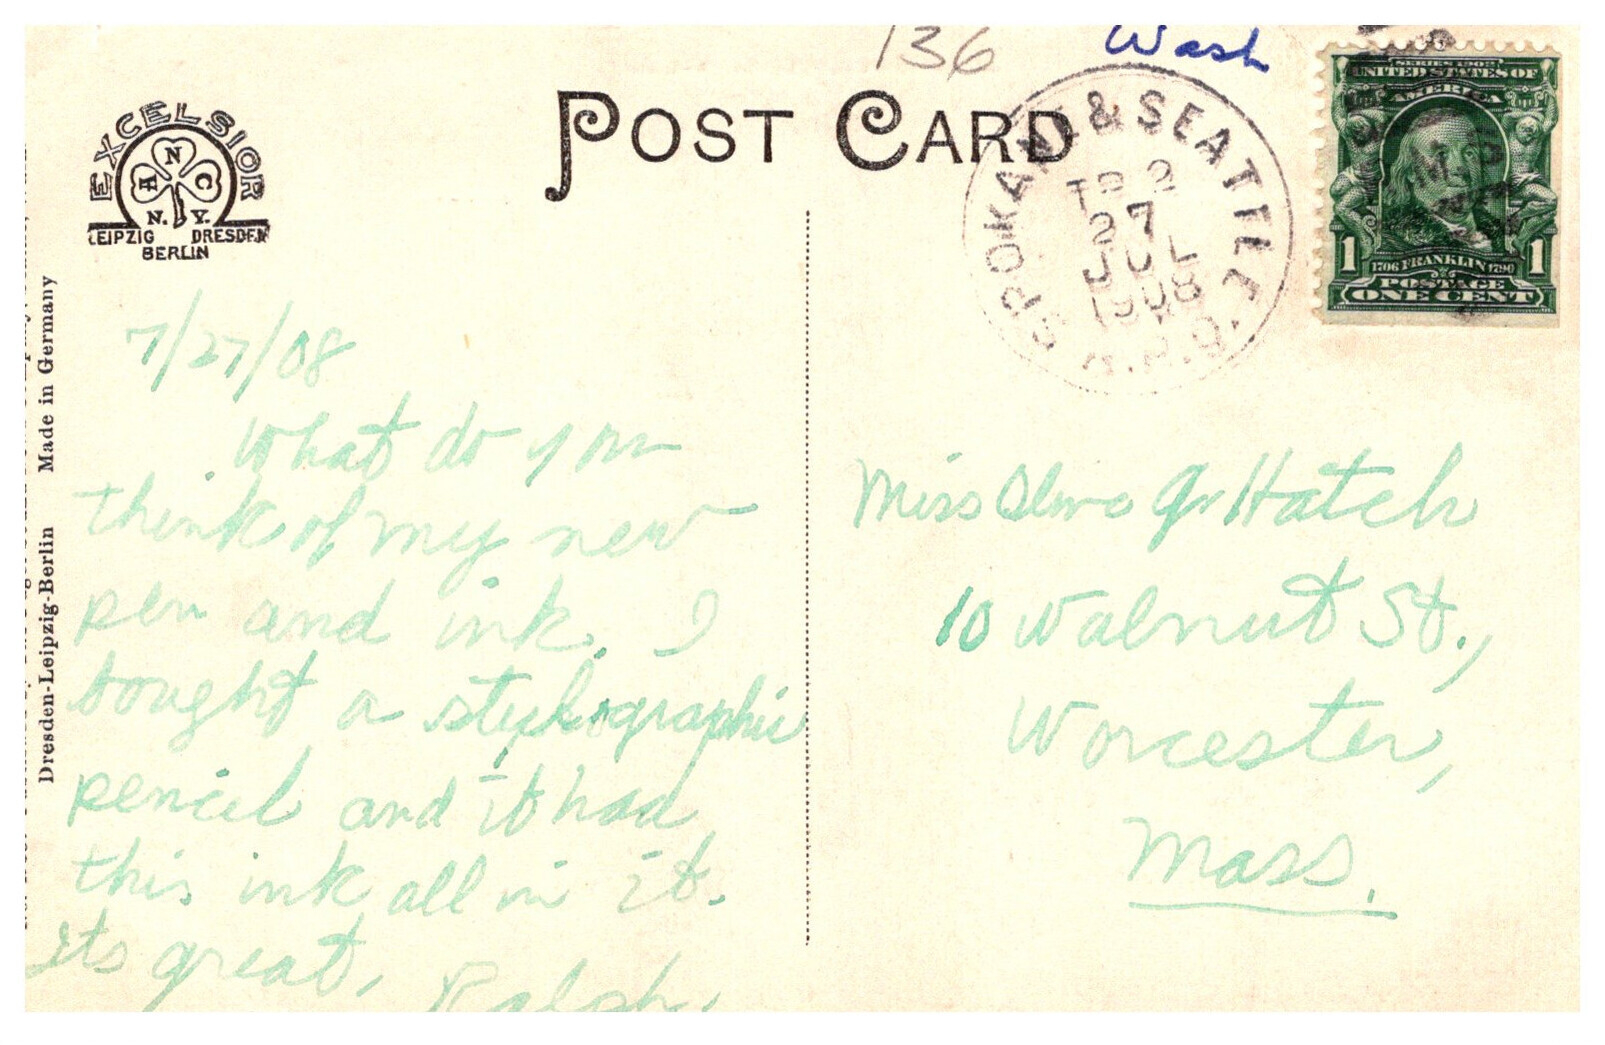 136
Wash
POST CARD
EXCELSIOR
N
A C
N. Y.
LEIPZIG DRESDEN
BERLIN
SPOKANE & SEATTLE.
TR 2
27
JUL
1908
R.P.O.
SERIES 1902
UNITED STATES OF
AMERICA
1 1706 FRANKLIN 1790 1
POSTAGE
ONE CENT
Dresden-Leipzig-Berlin Made in Germany
7/27/08
What do you
think of my new
pen and ink. I
bought a
pencil and it had
this ink all in it.
Its great.
Ralph.
Miss G. Hatch
10 Walnut St.,
Worcester,
Mass.